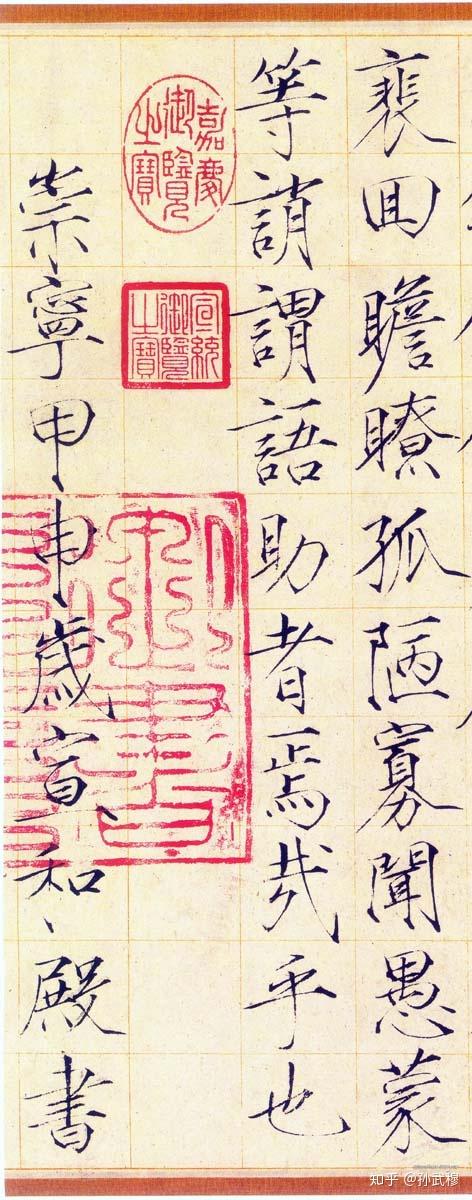 裵囬瞻瞭孤陋寡聞愚蒙
等誚謂語助者焉哉乎也
嘉慶御覽之寶
宣統御覽之寶
崇寧甲申歲宣和殿書
知乎 @孙武穆